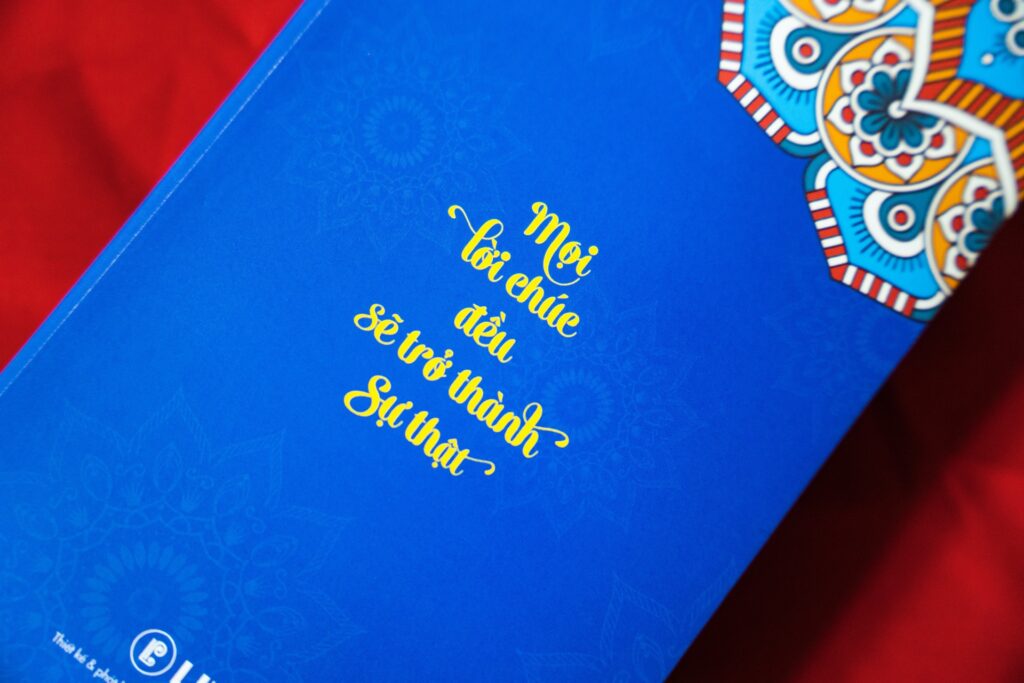 Mọi
lời chúc
đều
sẽ trở thành
Sự thật
Thiết kế &